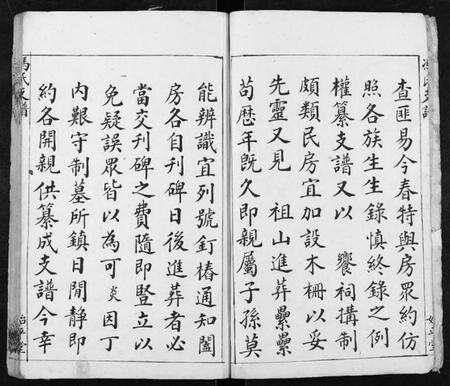 查匪易今春特與房眾約仿
照各族生生錄慎終錄之例
權纂支譜又以 饗祠搆制
頗類民房宜加設木柵以妥
先靈又見 祖山進葬纍纍
苟歷年既久即親屬子孫莫
能辨識宜列號釘樁通知闔
房各自刊碑日後進葬者必
當交刊碑之費隨即豎立以
免疑誤眾皆以為可炎因丁
內艱守制墓所鎮日閒靜即
約各開親供纂成支譜今幸
馮氏支譜